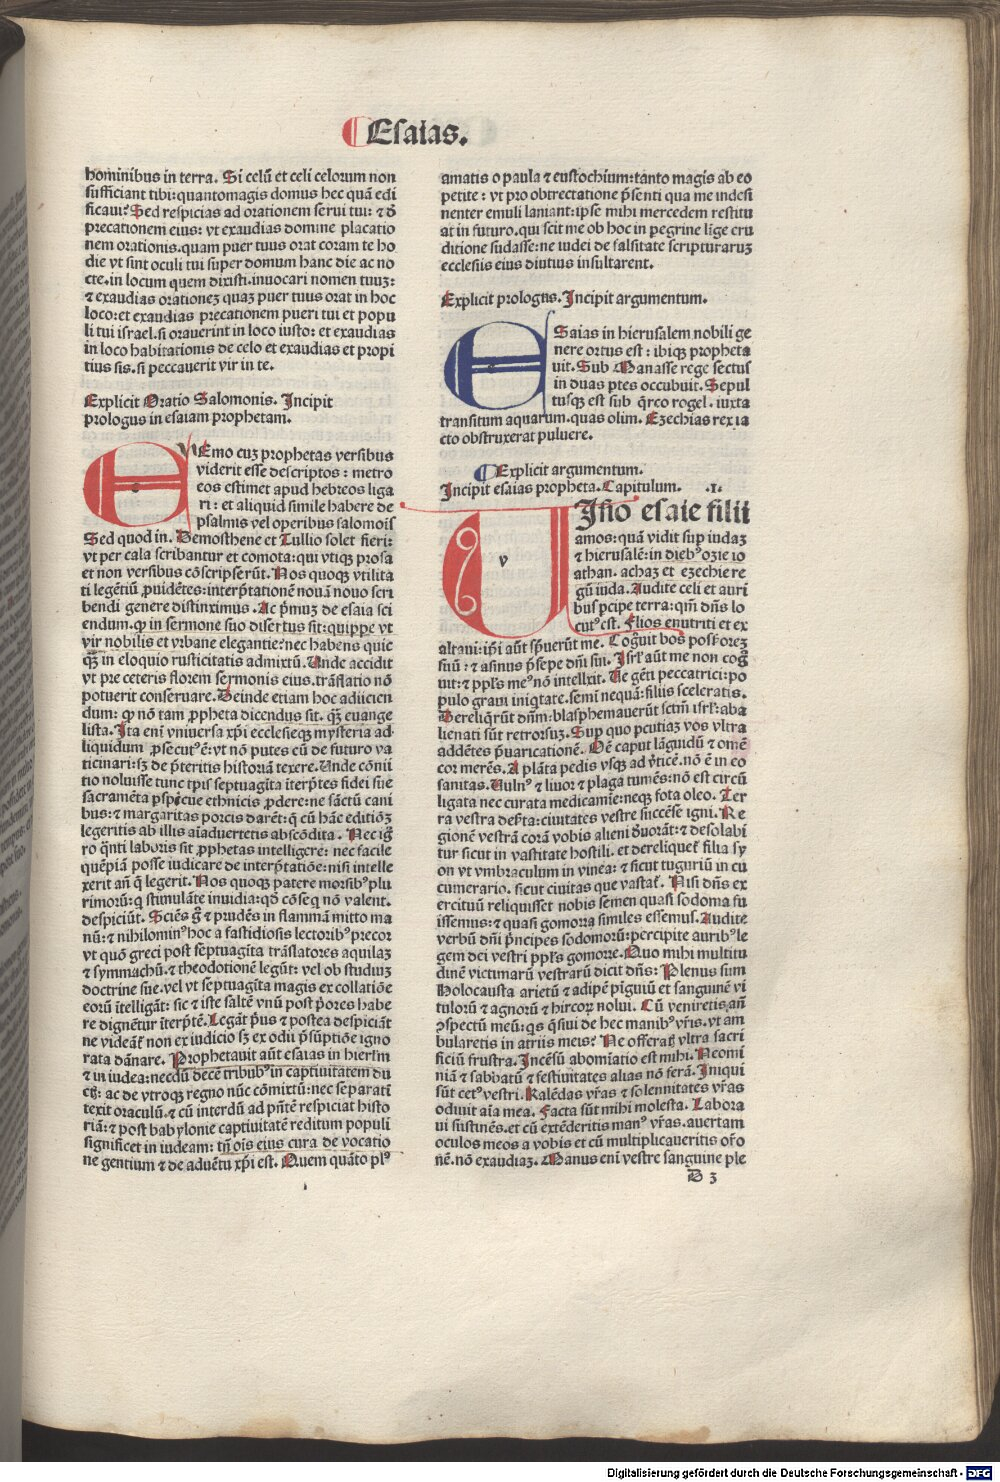 Esaias.
hominibus in terra. Si celũ et celi celorum non
sufficiant tibi: quantomagis domus hec quã edi
ficaui? Sed respicias ad orationem serui tui: ⁊ d̄
precationem eius: vt exaudias domine placatio
nem orationis. quam puer tuus orat coram te ho
die vt sint oculi tui super domum hanc die ac no
cte. in locum quem dixisti. inuocari nomen tuuz:
⁊ exaudias orationez quaz puer tuus orat in hoc
loco: et exaudias precationem pueri tui et popu
li tui israel. si orauerint in loco iusto: et exaudias
in loco habitationis de celo et exaudias et propi
tius sis. si peccauerit vir in te.
Explicit Oratio Salomonis. Incipit
prologus in esaiam prophetam.
NEmo cuz prophetas versibus
viderit esse descriptos: metro
eos estimet apud hebreos liga
ri: et aliquid simile habere de
psalmis vel operibus salomoĩs
Sed quod in. Demosthene et Tullio solet fieri:
vt per cala scribantur et comota: qui vtiqꝫ prosa
et non versibus cõscripserũt. Nos quoqꝫ vtilita
ti legẽtiũ ꝓuidẽtes: interp̃tationẽ nouã nouo scri
bendi genere distinximus. Ac p̃muz de esaia sci
endum. ꝙ in sermone suo disertus sit: quippe vt
vir nobilis et vrbane elegantie: nec habens quic
q̃ꝫ in eloquio rusticitatis admixtũ. Unde accidit
vt pre ceteris florem sermonis eius. trãslatio nõ
potuerit conseruare. Deinde etiam hoc adiicien
dum: ꝙ nõ tam ꝓpheta dicendus sit. q̃ꝫ euange
lista. Ita enĩ vniuersa xp̃i ecclesieqꝫ mysteria ad
liquidum ꝓsecut⁹ ẽ: vt nõ putes eũ de futuro va
ticinari: sꝫ de p̃teritis historiã texere. Unde cõnii
tio noluisse tunc tp̃is septuagĩta iterp̃tes fidei sue
sacramẽta p̃spicue ethnicis ꝓdere: ne sãctũ cani
bus: ⁊ margaritas porcis darẽt: q̃ cũ hãc editiõꝫ
legeritis ab illis aĩaduertetis abscõdita. Nec ig̃
ro q̃nti laboris sit ꝓphetas intelligere: nec facile
quẽpiã posse iudicare de interp̃tatiõe: nisi intelle
xerit añ q̃ legerit. Nos quoqꝫ patere morsib⁹ plu
rimorũ: q̃ stimulãte inuidia: qd̃ cõseq̃ nõ valent.
despiciũt. Sciẽs g̃ ⁊ prudẽs in flammã mitto ma
nũ: ⁊ nihilomin⁹ hoc a fastidiosis lectorib⁹ precor
vt quõ greci post septuagĩta trãslatores aquilaz
⁊ symmachũ. ⁊ theodotionẽ legũt: vel ob studiuz
doctrine sue. vel vt septuagĩta magis ex collatiõe
eorũ ĩtelligãt: sic ⁊ iste saltẽ vnũ post p̃ores habe
re dignẽtur ĩterp̃tẽ. Legãt p̃us ⁊ postea despiciãt
ne videãt̃ non ex iudicio sꝫ ex odii p̃sũptiõe igno
rata dãnare. Prophetauit aũt esaias in hierl̃m
⁊ in iudea: necdũ decẽ tribub⁹ in captiuitatem du
ct̃: ac de vtroqꝫ regno nũc cõmixtũ: nec separatĩ
texit oraculũ. ⁊ cũ interdũ ad p̃ñtẽ respiciat histo
riã: ⁊ post babylonie captiuitatẽ reditum populi
significet in iudeam: tñ oĩs eius cura de vocatio
ne gentium ⁊ de aduẽtu xp̃i est. Quem quãto pl⁹
amatis o paula ⁊ eustochium: tãnto magis ab eo
petite: vt pro obtrectatione p̃senti qua me indesi
nenter emuli laniant: ipse mihi mercedem restitu
at in futuro. qui scit me ob hoc in pegrine lĩge eru
ditione sudasse: ne iudei de falsitate scripturaruz
ecclesiis eius diutius insultarent.
Explicit prologus. Incipit argumentum.
ESaias in hierusalem nobili ge
nere ortus est: ibiqꝫ propheta
uit. Sub Manasse rege sectus
in duas ptes occubuit. Sepul
tusqꝫ est sub q̃rco rogel. iuxta
transitum aquarum. quas olim. Ezechias rex ia
cto obstruxerat puluere.
Explicit argumentum.
Incipit esaias propheta. Capitulum. .1.
v
Isio esaie filii
amos: quã vidit sup iudaz
⁊ hierusalẽ: in dieb⁹ ozie io
athan. achaz et ezechie re
gũ iuda. Audite celi et auri
bus pcipe terra: qm̃ dñs lo
cut⁹ est. Filios enutriti et ex
altaui: ip̃i aũt sp̃uerũt me. Cog̃uit bos possorez
suũ: ⁊ asinus p̃sepe dñi sui. Isrl̃ aũt me non cog̃
uit: ⁊ pp̃ls me⁹ nõ intellxit. Ue gẽti peccatrici: po
pulo graui iniq̃tate. semĩ nequã: filiis sceleratis.
Dereliq̃rũt dñm: blasphemauerũt sctm̃ isrl̃: aba
lienati sũt retrorsuz. Sup quo pcutiaz vos vltra
addẽtes p̃uaricationẽ. Oẽ caput lãguidũ ⁊ omẽ
cor merẽs. A plãta pedis vsqꝫ ad ṽticẽ. nõ ẽ in eo
sanitas. Uuln⁹ ⁊ liuor ⁊ plaga tumẽs: nõ est circũ
ligata nec curata medicamĩe: neqꝫ fota oleo. Ter
ra vestra desẽrta: ciuitates vestre succẽse igni. Re
gionẽ vestrã corã vobis alieni d̃uorãt: ⁊ desolabi
tur sicut in vastitate hostili. et derelinquet̃ filia sy
on vt vmbraculum in vinea: ⁊ sicut tuguriũ in cu
cumerario. sicut ciuitas que vastat̃. Nisi dñs ex
ercituũ reliquisset nobis semen quasi sodoma fu
issemus: ⁊ quasi gomorra similes essemus. Audite
verbũ dñi p̃ncipes sodomorũ: percipite aurib⁹ le
gem dei vestri pp̃ls gomorre. Quo mihi multitu
dinẽ victimarũ vestrarũ dicit dñs: Plenus sum
Holocausta arietũ ⁊ adipẽ pĩguiũ et sanguinẽ vi
tulorũ ⁊ agnorũ ⁊ hircoꝝ nolui. Cũ veniretis añ
ↄspectũ meũ: qs̃ q̃siui de hec manib⁹ vr̃is. vt am
bularetis in atriis meis? Ne offerat̃ vltra sacri
ficiũ frustra. Incẽsũ abomĩatio est mihi. Neomĩ
niã ⁊ sabbatũ ⁊ festiuitates alias nõ ferã. Iniqui
sũt cet⁹ vestri. Kalẽdas vr̃as ⁊ solennitates vr̃as
odiuit aĩa mea. Facta sũt mihi molesta. Labora
ui sustinẽs. et cũ extẽderitis man⁹ vr̃as. auertam
oculos meos a vobis et cũ multiplicaueritis or̃o
nẽ. nõ exaudiaz. Manus enĩ vestre sanguine ple
D 3
Digitalisierung gefördert durch die Deutsche Forschungsgemeinschaft - DFG